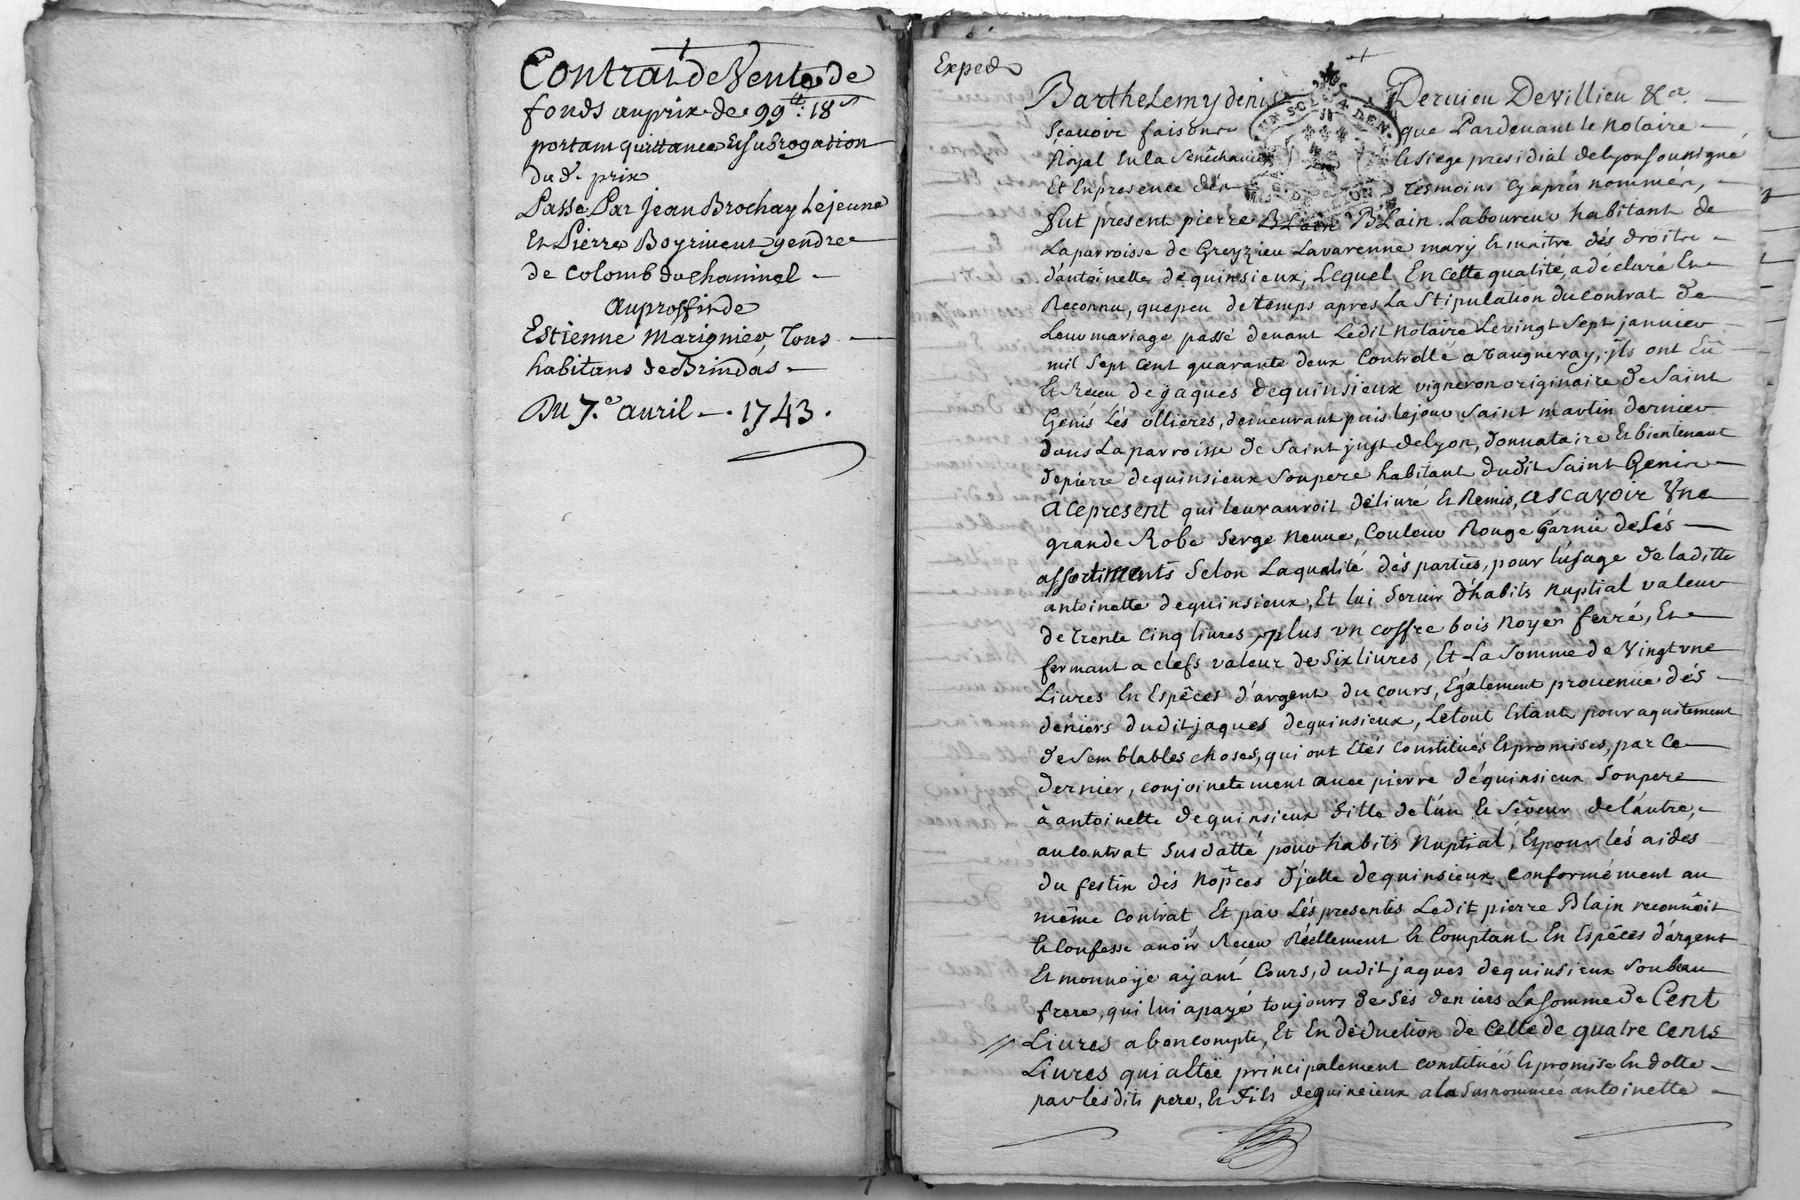 Contrat de Vente de
fonds au prix de 99tt: 18s
portant quittance Et subrogation
du d. prix
Passé Par Jean Brochay Lejeune
Et Pierre Boyriuent gendre
de Colomb du chaminel
au proffit de
Estienne Marignier, Tous
habitans de Brindas
Du 7.e auril 1743.
Exped
Barthelemy denis Deruieu De Villieu &a.
Sçauoir faisons que Pardeuant le Notaire
Royal En la Sénéchaucée & siege presidial de lyon soussigné
Et En presence dés tesmoins cy aprés nommés,
fut present pierre Blain Blain Laboureur habitant de
La parroisse de Greyzieu Lauarenne mary & maître dés droits
d'antoinette dequinsieux, Lequel En cette qualité, a déclaré Et
Reconnu, que peu de temps apres La Stipulation du contrat de
Leur mariage passé deuant Ledit Notaire Le vingt Sept januier
mil Sept cent quarante deux Controllé a Vaugneray, jls ont Eû
Et Receu de jaques dequinsieux vigneron originaire de Saint
Genis Lés ollieres, demeurant puis le jour Saint martin dernier
dans La parroisse de Saint just de lyon, donnataire Et bientenant
de pierre dequinsieux Son pere habitant dudit Saint Genis
a ce present qui leur auroit déliuré & Remis, ascavoir Vne
grande Robe Serge neuue, Couleur Rouge Garnie de sés
assortiments Selon La qualité dés parties, pour l'usage de laditte
antoinette dequinsieux, Et lui Seruir d'habits nuptial valeur
de trente cinq liures, plus vn coffre bois noyer ferré, Et
fermant a clefs valeur de Six liures, Et La Somme de Vingt vne
Liures En Espêces d'argent du cours, Également prouenue dés
déniers dudit jaques dequinsieux, Letout Estant pour aquitement
de Semblables choses, qui ont Etés constitués & promises, par ce
dernier, conjoinctement auec pierre dequinsieux Son pere
à antoinette dequinsieux fille de l'un & Sêoeur de l'autre,
au contrat Susdatté pour habits Nuptial, & pour lés aides
du festin dés nopces d'jcelle dequinsieux, conformément au
même contrat Et par Lés presentes Ledit pierre Blain reconnôit
& Confesse auoir Receu Réellement & Comptant En Espêces d'argent
Et monnoÿe aÿant Cours, dudit jaques dequinsieux Son beau
frere, qui lui a payé toujours de Sés deniers La Somme de Cent
Liures a bon compte, Et En déduction de Celle de quatre cents
Liures qui a Eté principalement constituée & promise En dotte
par lésdits pere, & fils dequincieux a la Susnommée antoinette